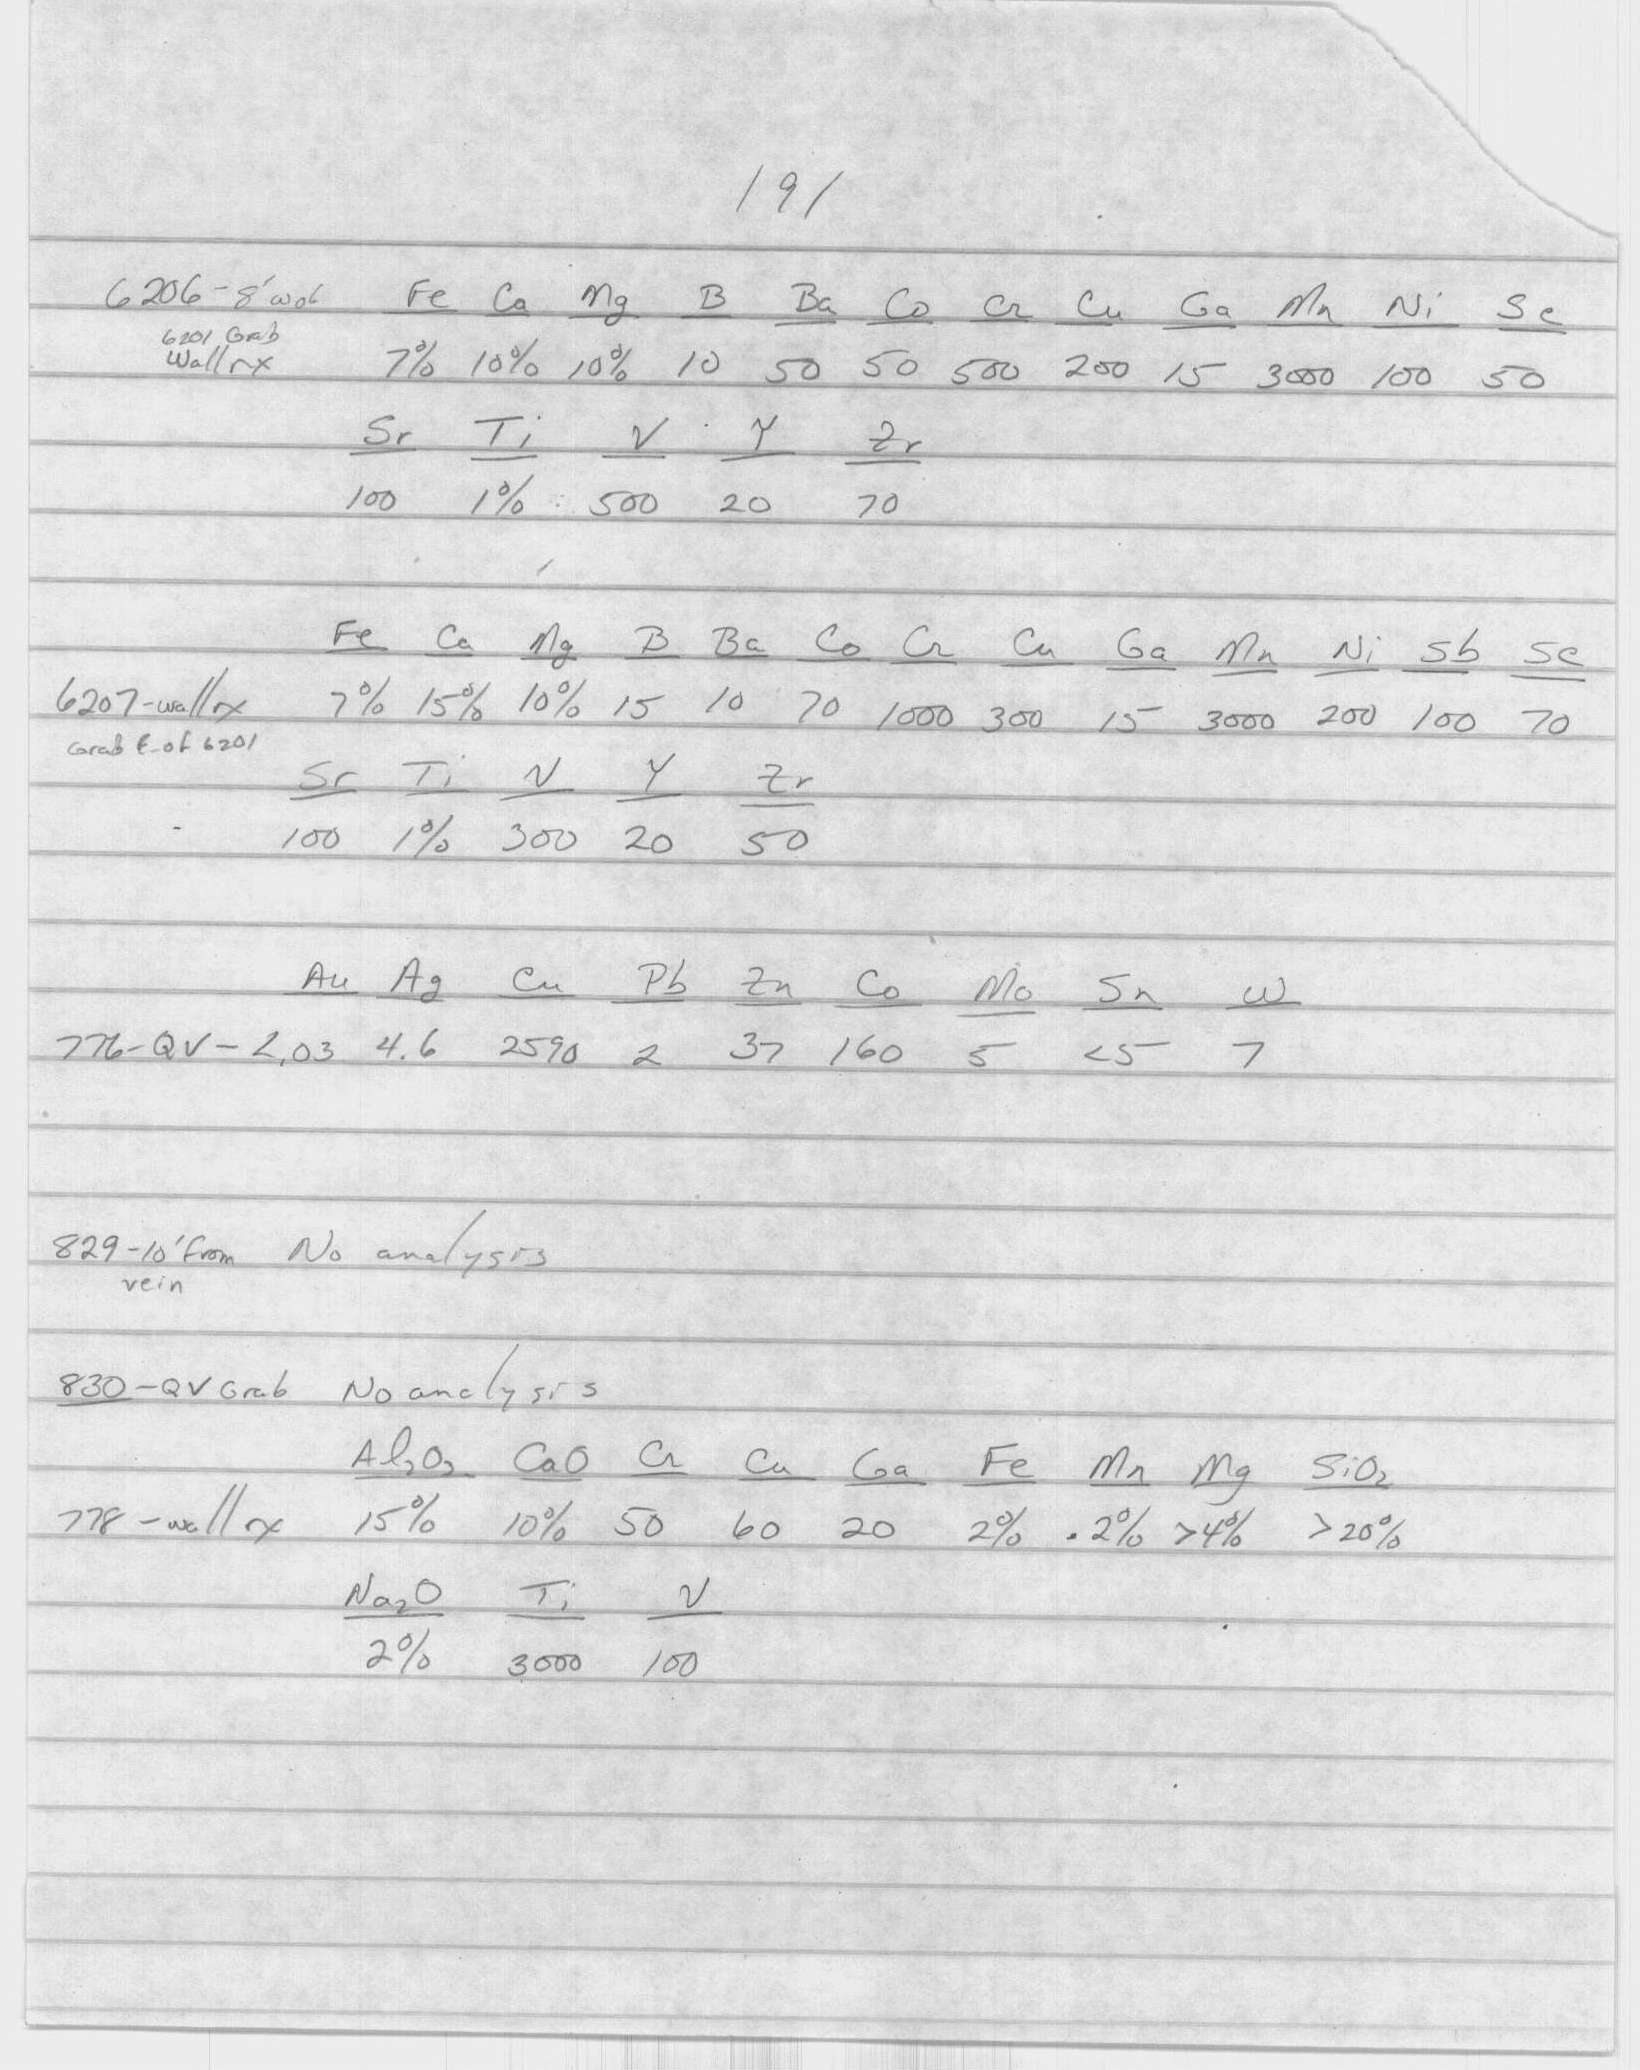 191
6206-8' W of Fe Ca Mg B Ba Co Cr Cu Ga Mn Ni Sc
6201 Grab
Wall rx 7% 10% 10% 10 50 50 500 200 15 3000 100 50
Sr Ti V Y Zr
100 1% 500 20 70
Fe Ca Mg B Ba Co Cr Cu Ga Mn Ni Sb Sc
6207-wall rx 7% 15% 10% 15 10 70 1000 300 15 3000 200 100 70
Grab E. of 6201
Sr Ti V Y Zr
100 1% 300 20 50
Au Ag Cu Pb Zn Co Mo Sn W
776-QV- 2.03 4.6 2590 2 37 160 5 <5 7
829-10' from No analysis
vein
830-QV Grab No analysis
Al2O3 CaO Cr Cu Ga Fe Mn Mg SiO2
778-wall rx 15% 10% 50 60 20 2% .2% >4% >20%
Na2O Ti V
2% 3000 100